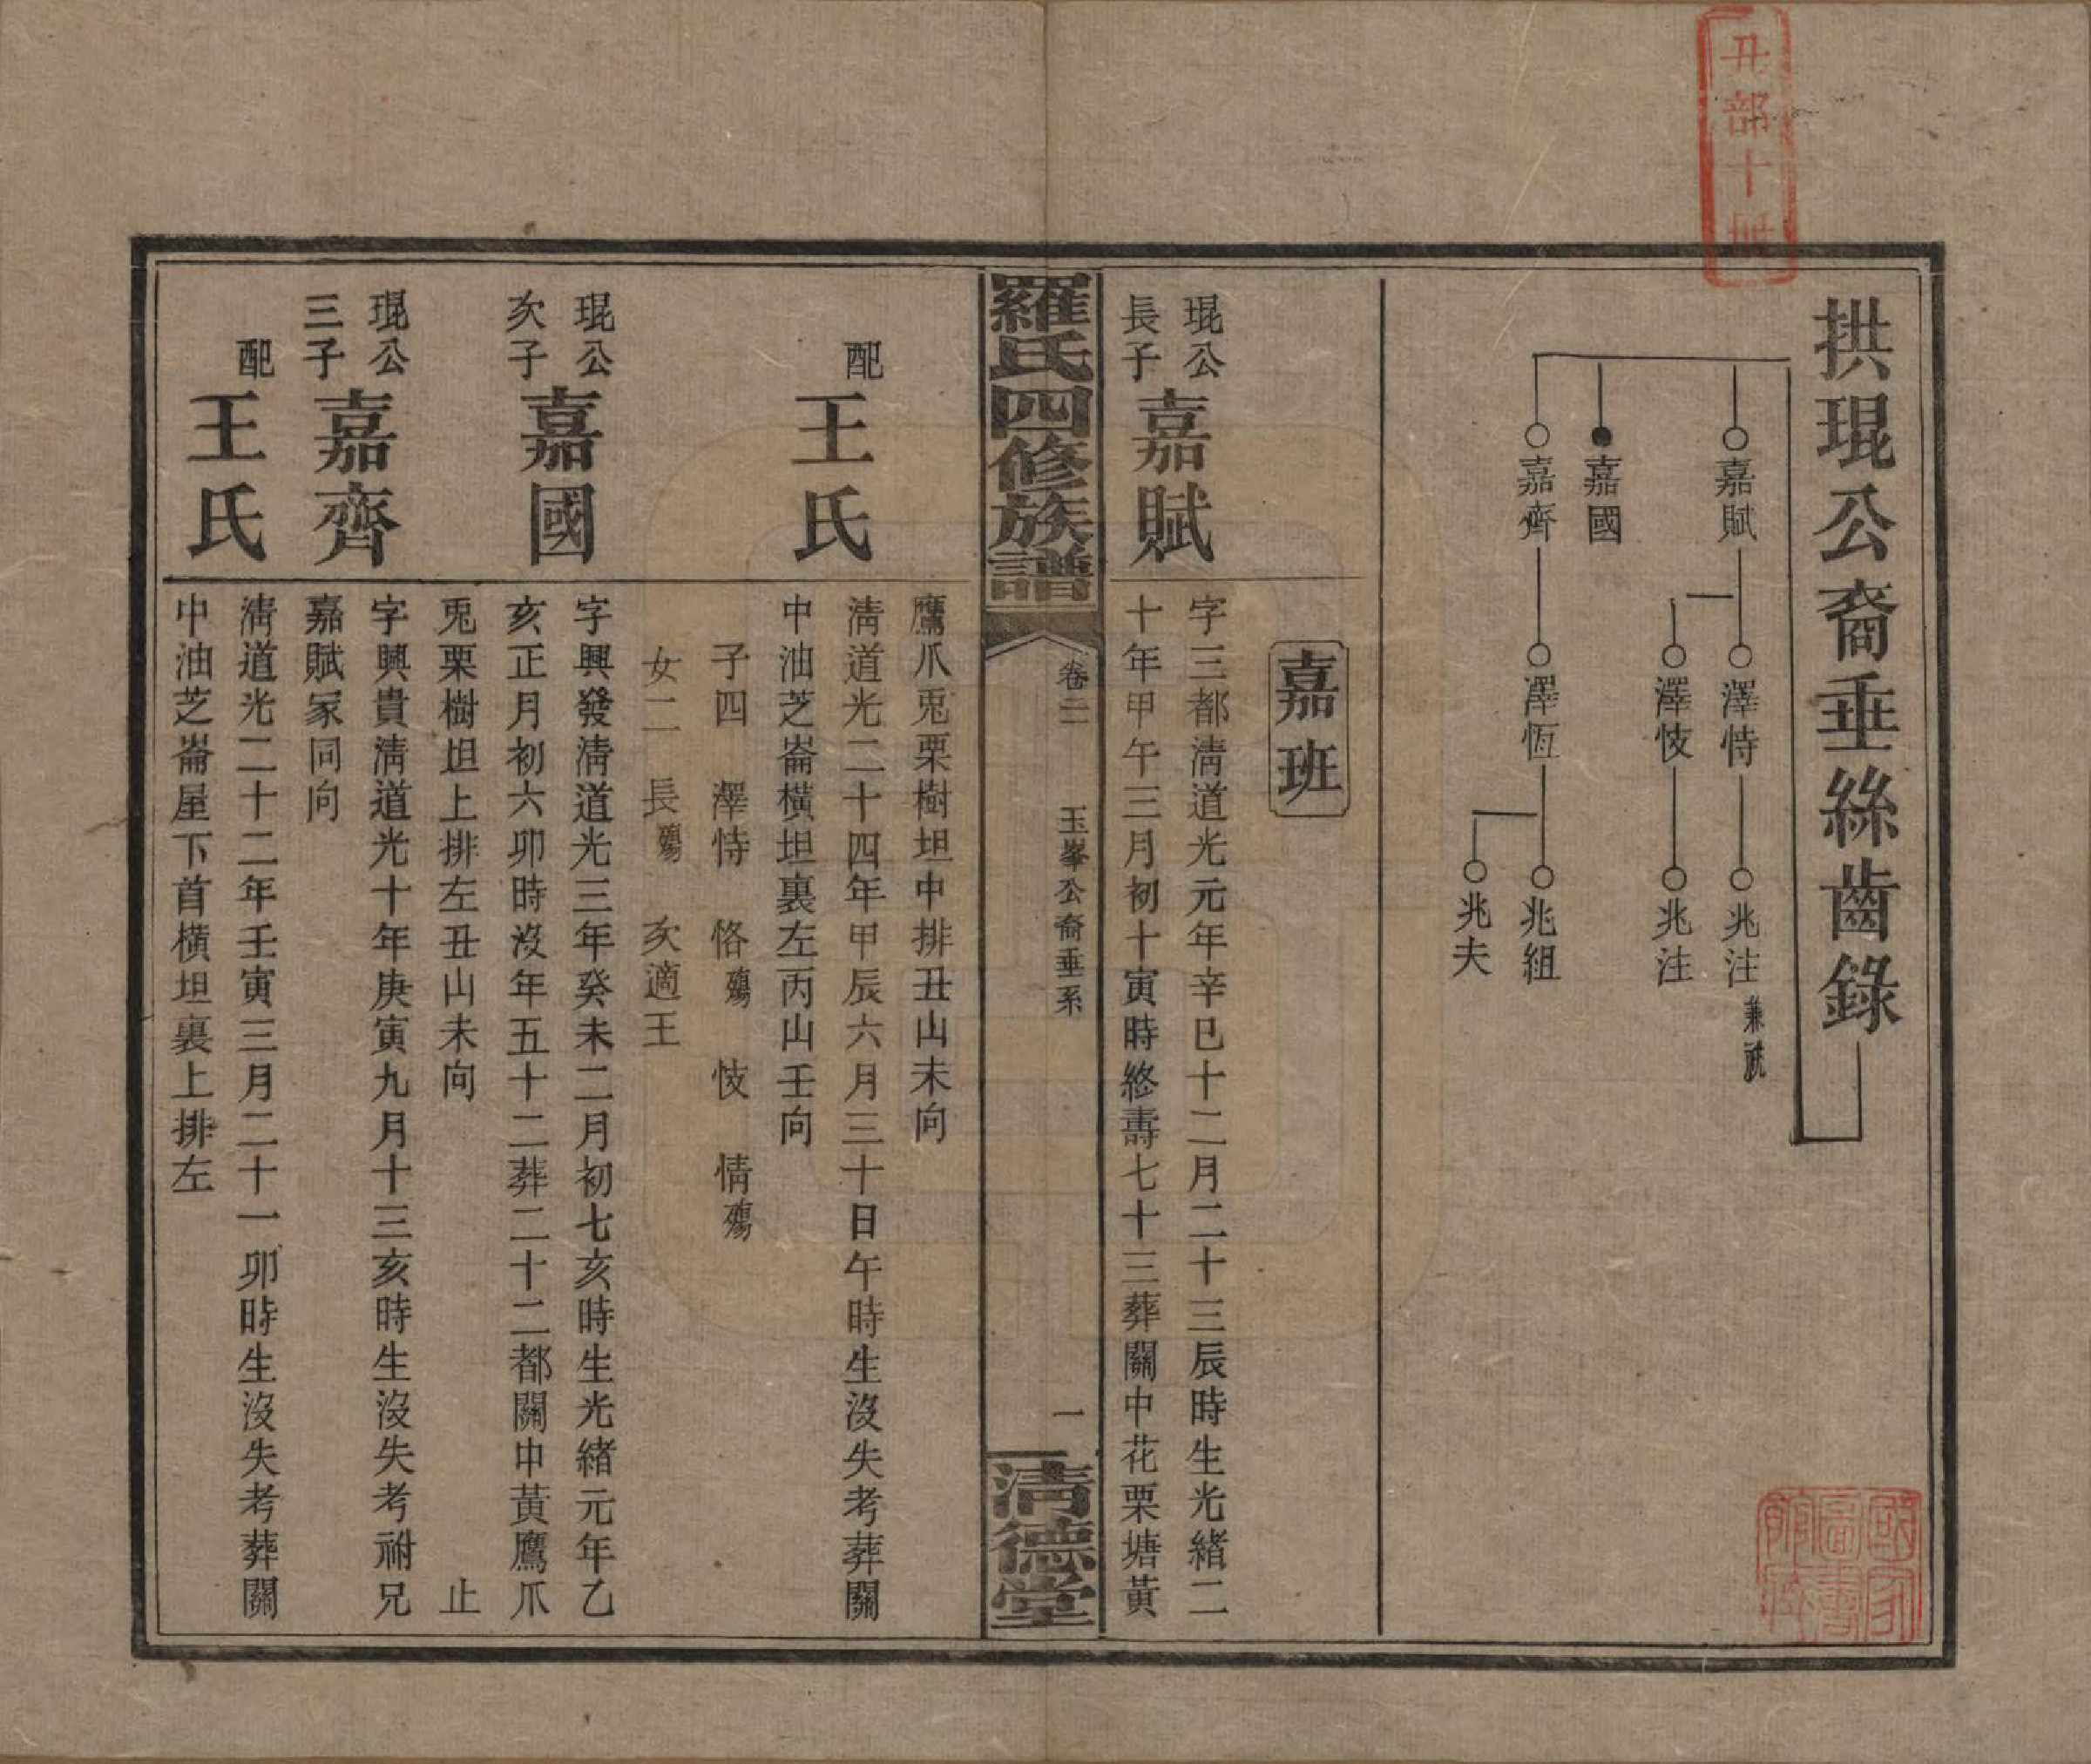 丑部十
拱琨公裔垂絲齒錄
嘉賦
嘉國
嘉齊
澤恃
澤忮
澤恆
兆注兼祧
兆注
兆組
兆夫
嘉班
琨公長子
嘉賦
字三都淸道光元年辛巳十二月二十三辰時生光緒二
十年甲午三月初十寅時終壽七十三葬關中花栗塘黃
羅氏四修族譜
卷二
玉峯公裔垂系
一
淸德堂
鷹爪兎栗樹坦中排丑山未向
配王氏
淸道光二十四年甲辰六月三十日午時生沒失考葬關
中油芝崙橫坦裏左丙山壬向
子四 澤恃 恪殤 忮 情殤
女二 長殤 次適王
琨公次子
嘉國
字興發淸道光三年癸未二月初七亥時生光緒元年乙
亥正月初六卯時沒年五十二葬二十二都關中黃鷹爪
兎栗樹坦上排左丑山未向 止
琨公三子
嘉齊
字興貴淸道光十年庚寅九月十三亥時生沒失考祔兄
嘉賦冢同向
配王氏
淸道光二十二年壬寅三月二十一卯時生沒失考葬關
中油芝崙屋下首橫坦裏上排左